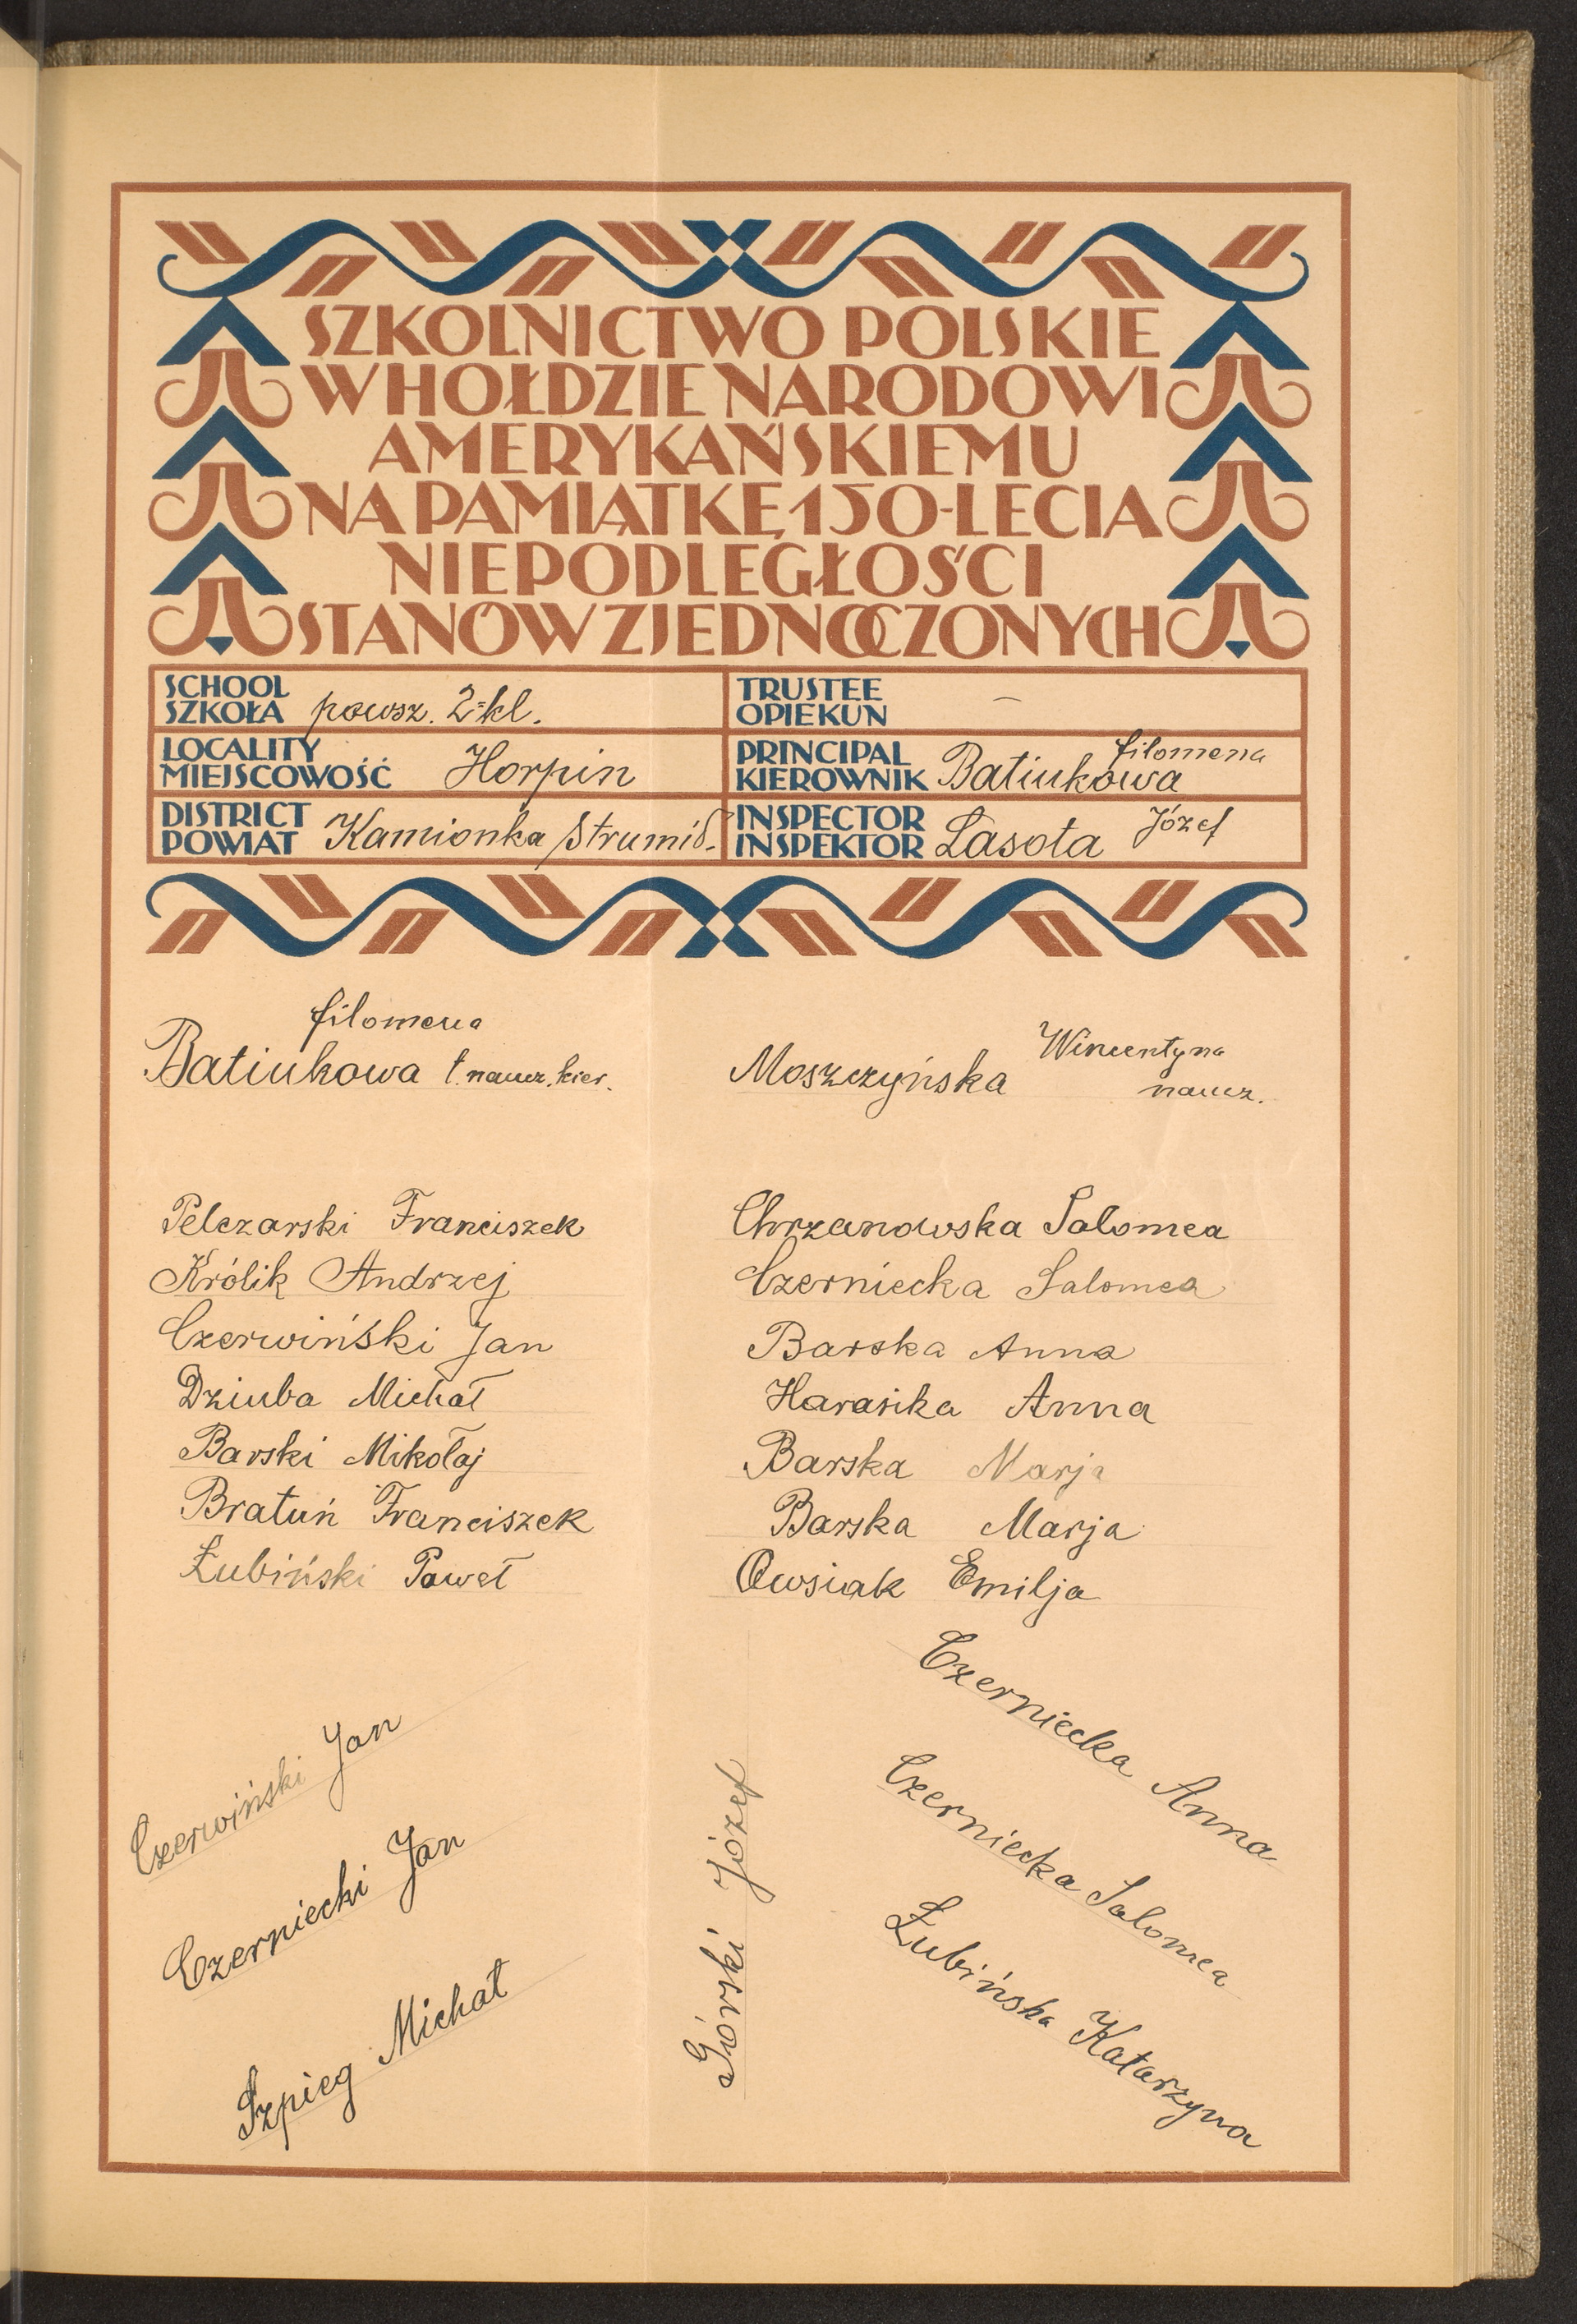 SZKOLNICTWO POLSKIE
W HOŁDZIE NARODOWI
AMERYKAŃSKIEMU
NA PAMIĄTKĘ 150-LECIA
NIEPODLEGŁOŚCI
STANÓW ZJEDNOCZONYCH
SCHOOL
SZKOŁA powsz. 2=kl.
TRUSTEE
OPIEKUN –
LOCALITY
MIEJSCOWOŚĆ Horpin
PRINCIPAL
KIEROWNIK Batiukowa filomena
DISTRICT
POWIAT Kamionka Strumił.
INSPECTOR
INSPEKTOR Lasota Józef
filomena
Batiukowa t. naucz. kier.
Wincentyna
Moszczyńska naucz.
Pelczarski Franciszek
Królik Andrzej
Czerwiński Jan
Dziuba Michał
Barski Mikołaj
Bratuń Franciszek
Łubiński Paweł
Chrzanowska Salomea
Czerniecka Salomea
Barska Anna
Harasika Anna
Barska Marja
Barska Marja
Owsiak Emilja
Czerwiński Jan
Czerniecki Jan
Szpieg Michał
Górski Józef
Czerniecka Anna
Czerniecka Salomea
Łubińska Katarzyna